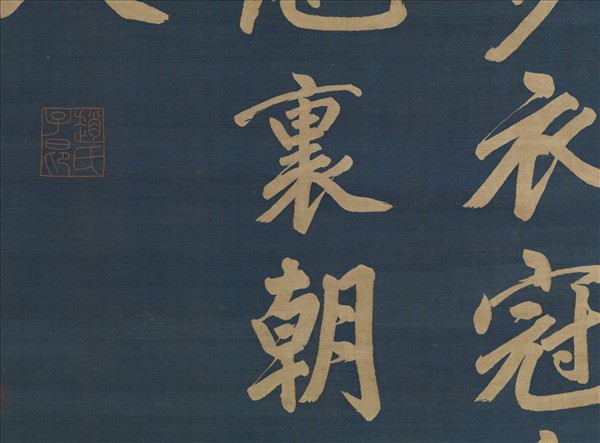 衣冠
裏朝
趙氏子昂